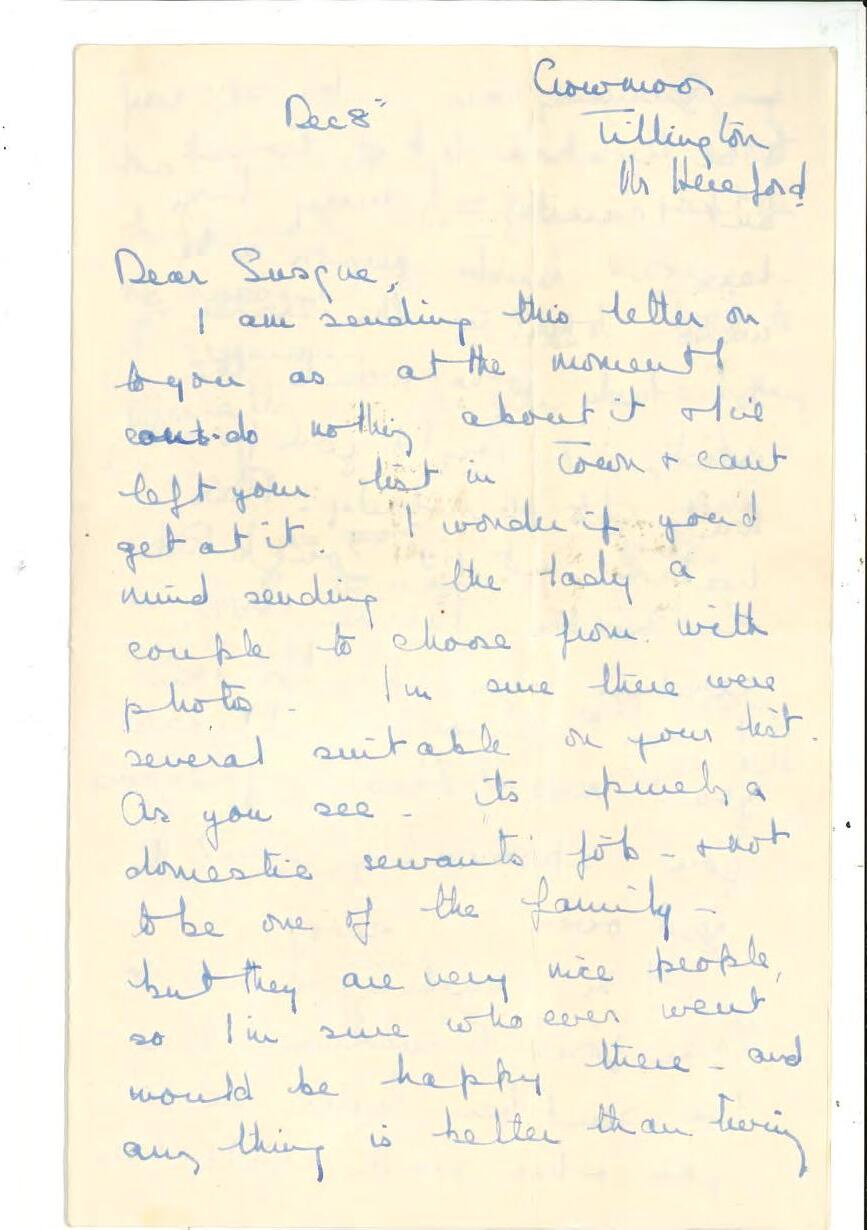 Crowmoor
Dec 8"
Tillington
Nr Hereford
Dear Susque,
I am sending this letter on
to you as at the moment I
can do nothing about it & I've
left your list in Town & cant
get at it. I wonder if you'd
mind sending the lady a
couple to choose from with
photos - I'm sure there were
several suitable on your list.
As you see - its purely a
domestic servants' job - & not
to be one of the family -
but they are very nice people,
so I'm sure who ever went
would be happy there - and
any thing is better than living